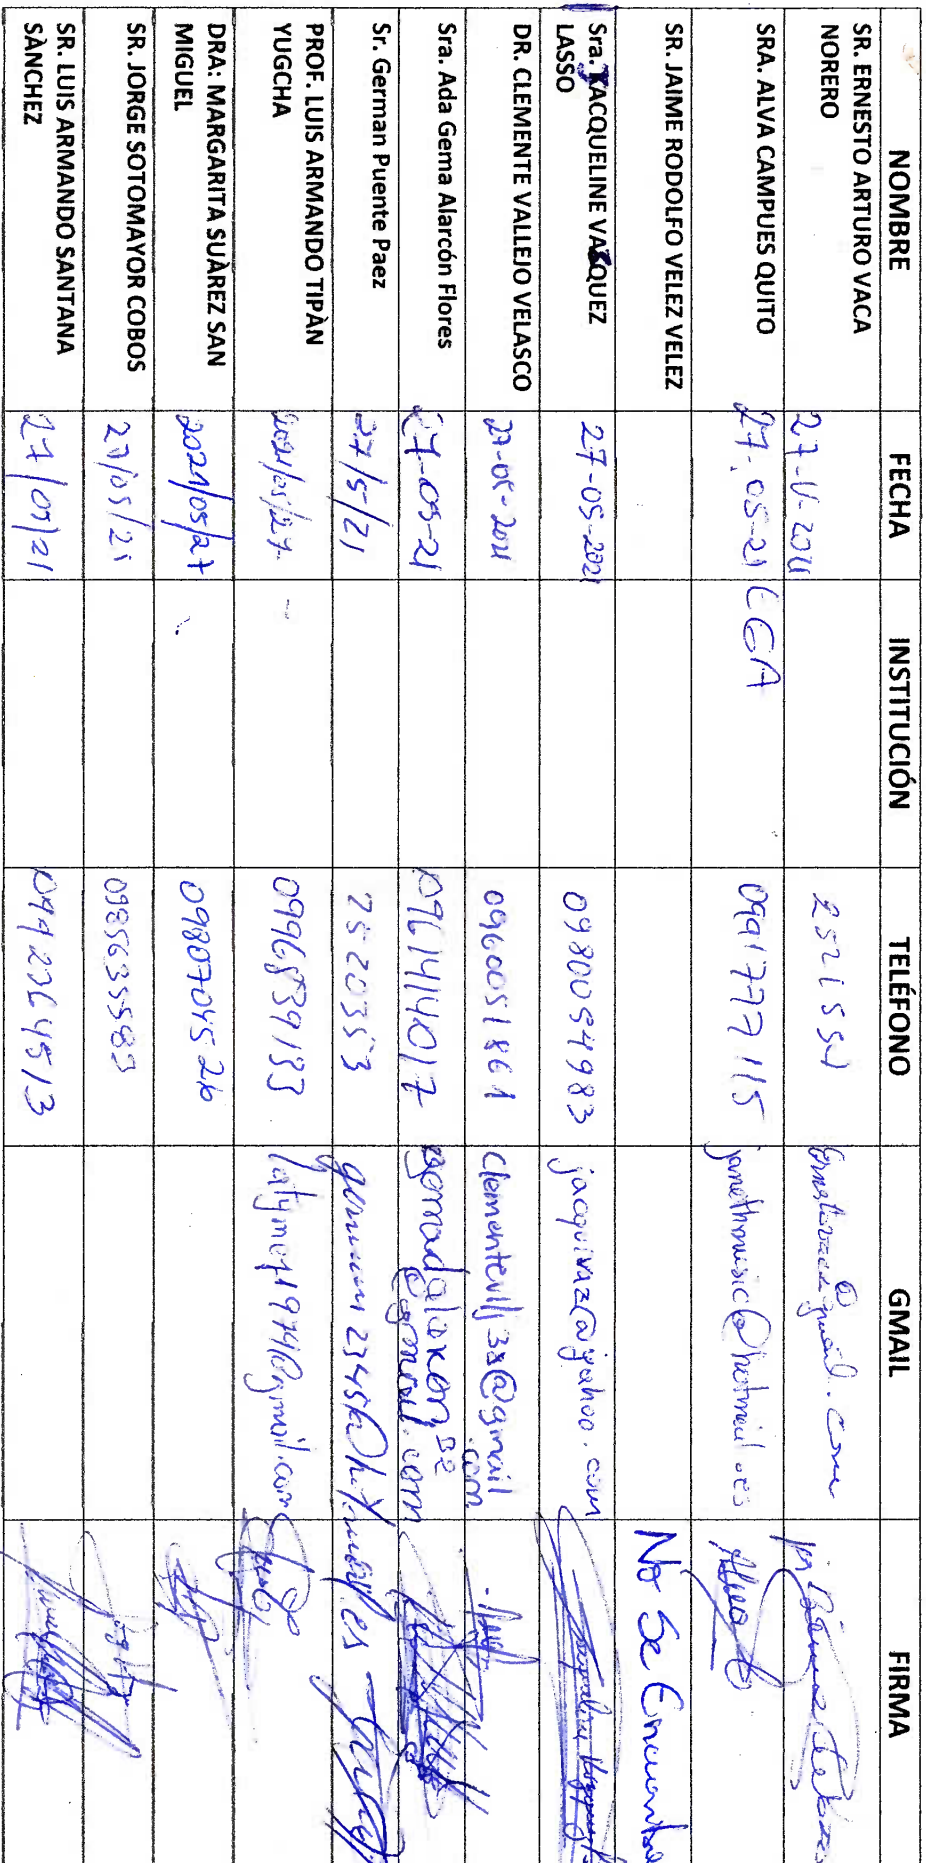 NOMBRE FECHA INSTITUCIÓN TELÉFONO GMAIL FIRMA
SR. ERNESTO ARTURO VACA
NORERO
27-V-2021 2521551
SRA. ALVA CAMPUES QUITO 27-05-21 LGA 0991777115 janethmusic@hotmail.es
SR. JAIME RODOLFO VELEZ VELEZ No Se Encuentra
Sra. JACQUELINE VAZQUEZ
LASSO
27-05-2021 0980054983 jacquivaz@yahoo.com
DR. CLEMENTE VALLEJO VELASCO 27-05-2021 0960051861 Clementevllj38@gmail
.com
Sra. Ada Gema Alarcón Flores 27-05-21 0961414017
@gmail.com
Sr. German Puente Paez 27/5/21 2520353
PROF. LUIS ARMANDO TIPÀN
YUGCHA
2021/05/27 - 0996839133
DRA: MARGARITA SUÀREZ SAN
MIGUEL
2021/05/27 0980704526
SR. JORGE SOTOMAYOR COBOS 27/05/21 0985635583
SR. LUIS ARMANDO SANTANA
SÀNCHEZ
27/05/21 0992364513